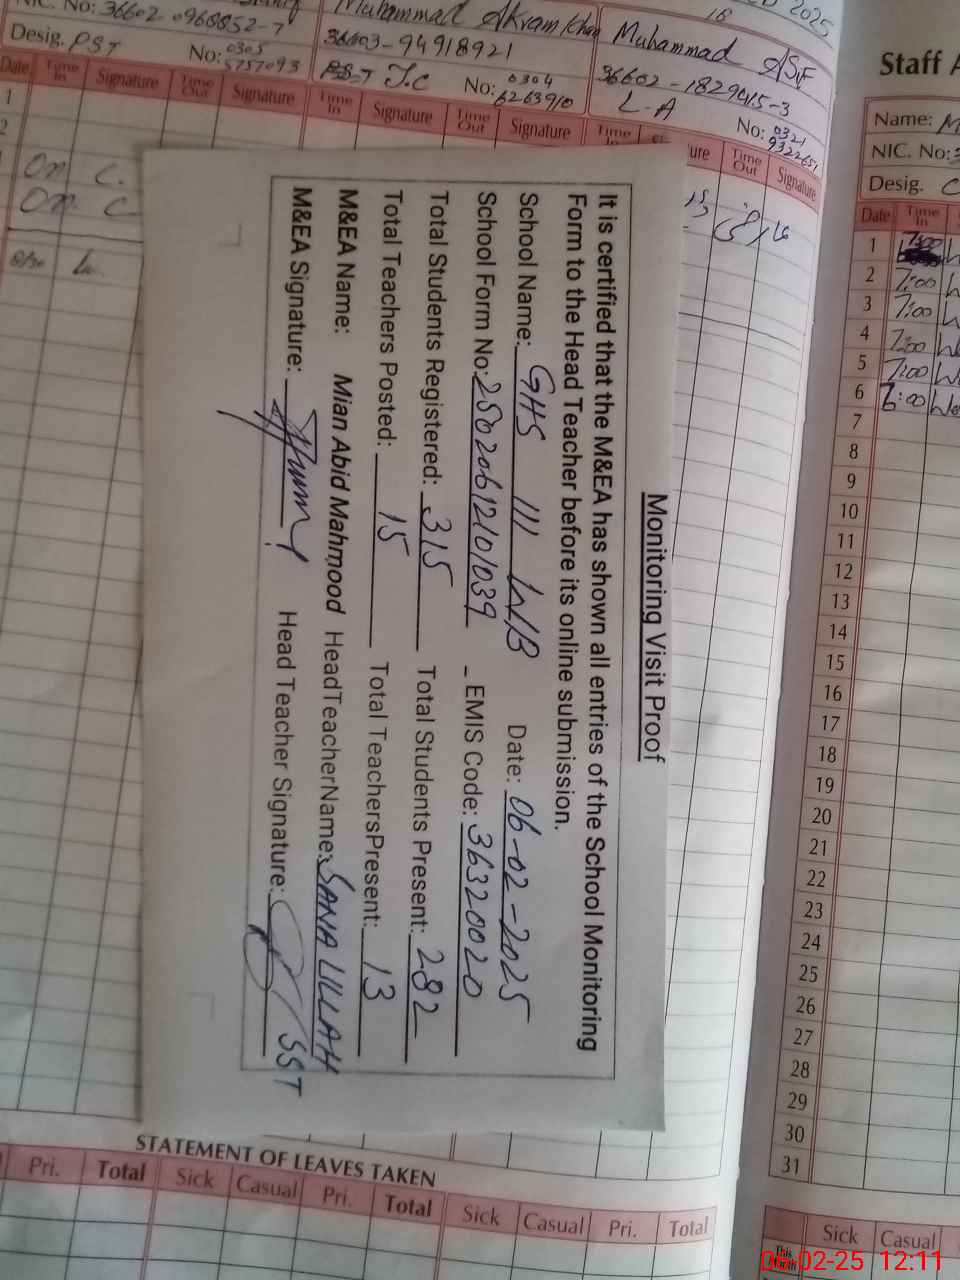 Monitoring Visit Proof
It is certified that the M&EA has shown all entries of the School Monitoring
Form to the Head Teacher before its online submission.
School Name: GHS 111 W/B Date: 06-02-2025
School Form No: 25020612101039 _ EMIS Code: 36320020
Total Students Registered: 315 Total Students Present: 282
Total Teachers Posted: 15 Total TeachersPresent: 13
M&EA Name: Mian Abid Mahmood HeadTeacherName: SANA ULLAH
M&EA Signature: Head Teacher Signature: SST
NIC. No: 36602-0960852-7
Desig. PST No: 0305
5757093
Muhammad Akram Khan
36603-94918921
PST T.C No: 0304
6263910
2025
Muhammad ASF
36602-1829415-3
L.A No: 0321
Date Time In Signature Time Out Signature Time In Signature Time Out Signature Time Time Out Signature
1
2
On
On
STATEMENT OF LEAVES TAKEN
Pri. Total Sick Casual Pri. Total Sick Casual Pri. Total
Staff A
Name: M
NIC. No: 3
Desig. C
Date Time In
1 7:00
2 7:00
3 7:00
4 7:00
5 7:00
6 8:00
7
8
9
10
11
12
13
14
15
16
17
18
19
20
21
22
23
24
25
26
27
28
29
30
31
Sick Casual
This Month
06-02-25 12:11